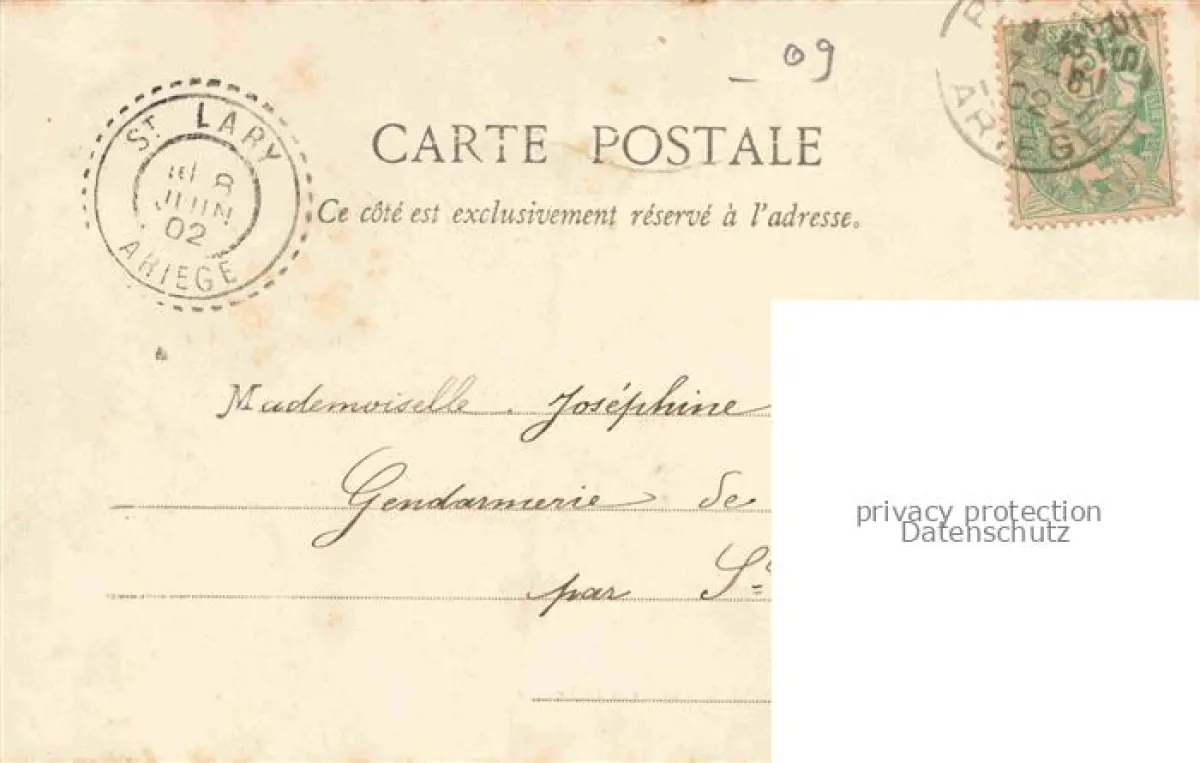 09
ARIEGE
02
CARTE POSTALE
St LARY
8
JUIN
02
ARIEGE
Ce côté est exclusivement réservé à l'adresse.
Mademoiselle Joséphine
Gendarmerie de
par St
privacy protection
Datenschutz